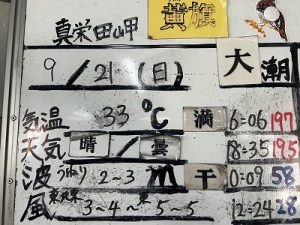 真栄田岬
黄旗
9/21(日) 大潮
気温 33℃ 満 6:06 197
天気 晴/曇 18:35 195
波 うねり 2~3m 干 0:09 58
風 東北東 3~4~東 5~5 12:24 28